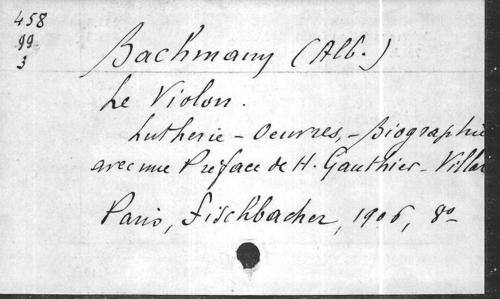 458
99
3
Bachmann (Alb.)
Le Violon.
Lutherie - Oeuvres, - Biographie
avec une Préface de H. Gauthier - Villar
Paris, Fischbacher, 1906, 8º